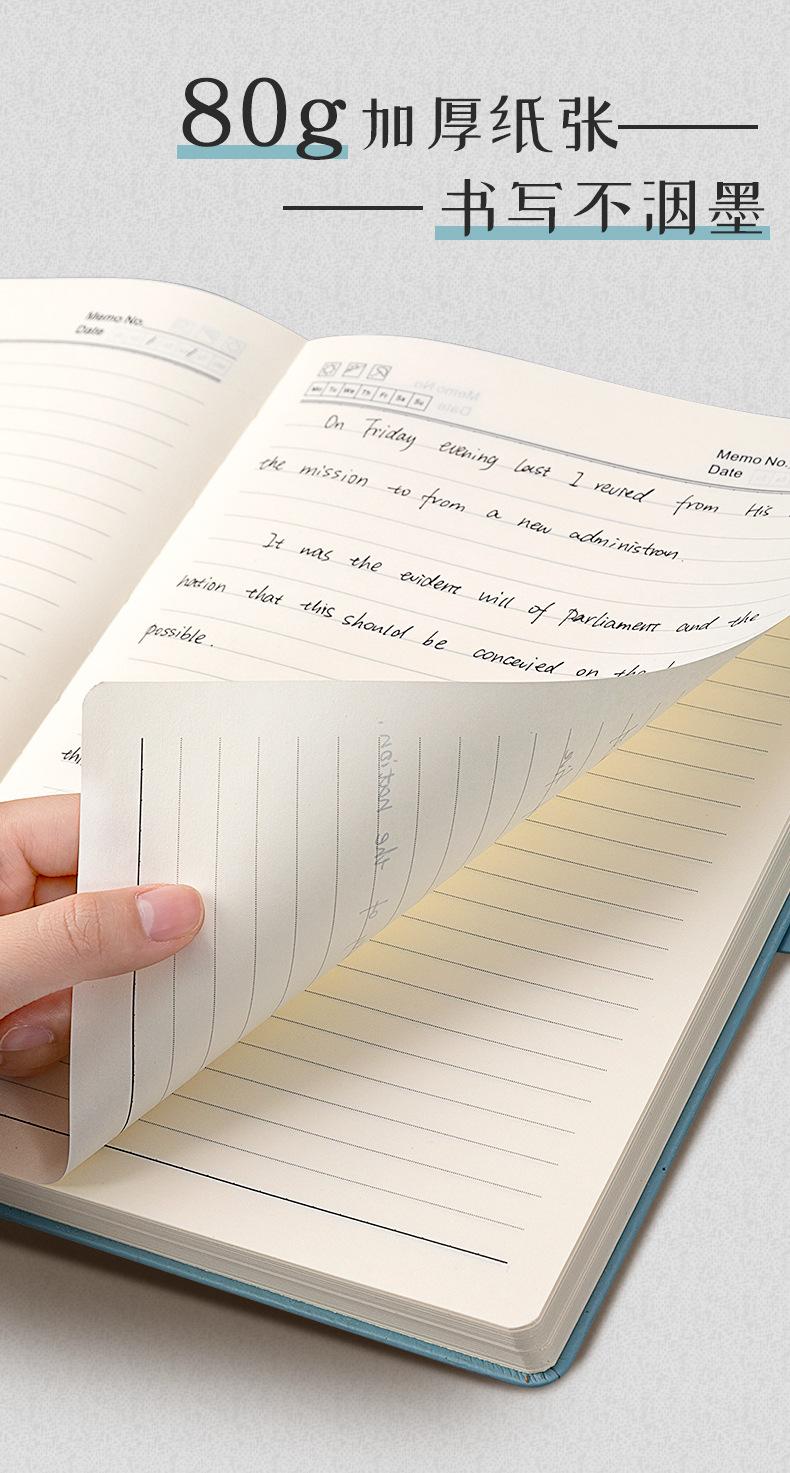 80g加厚纸张——
——书写不洇墨
Memo No.
Date
Mo Tu We Th Fr Sa Su
Memo No.
Date
On Friday evening last I revired from His
the mission to from a new administraun.
It was the evident will of parliament and the
hation that this should be concevied on the
possible.
the nation.